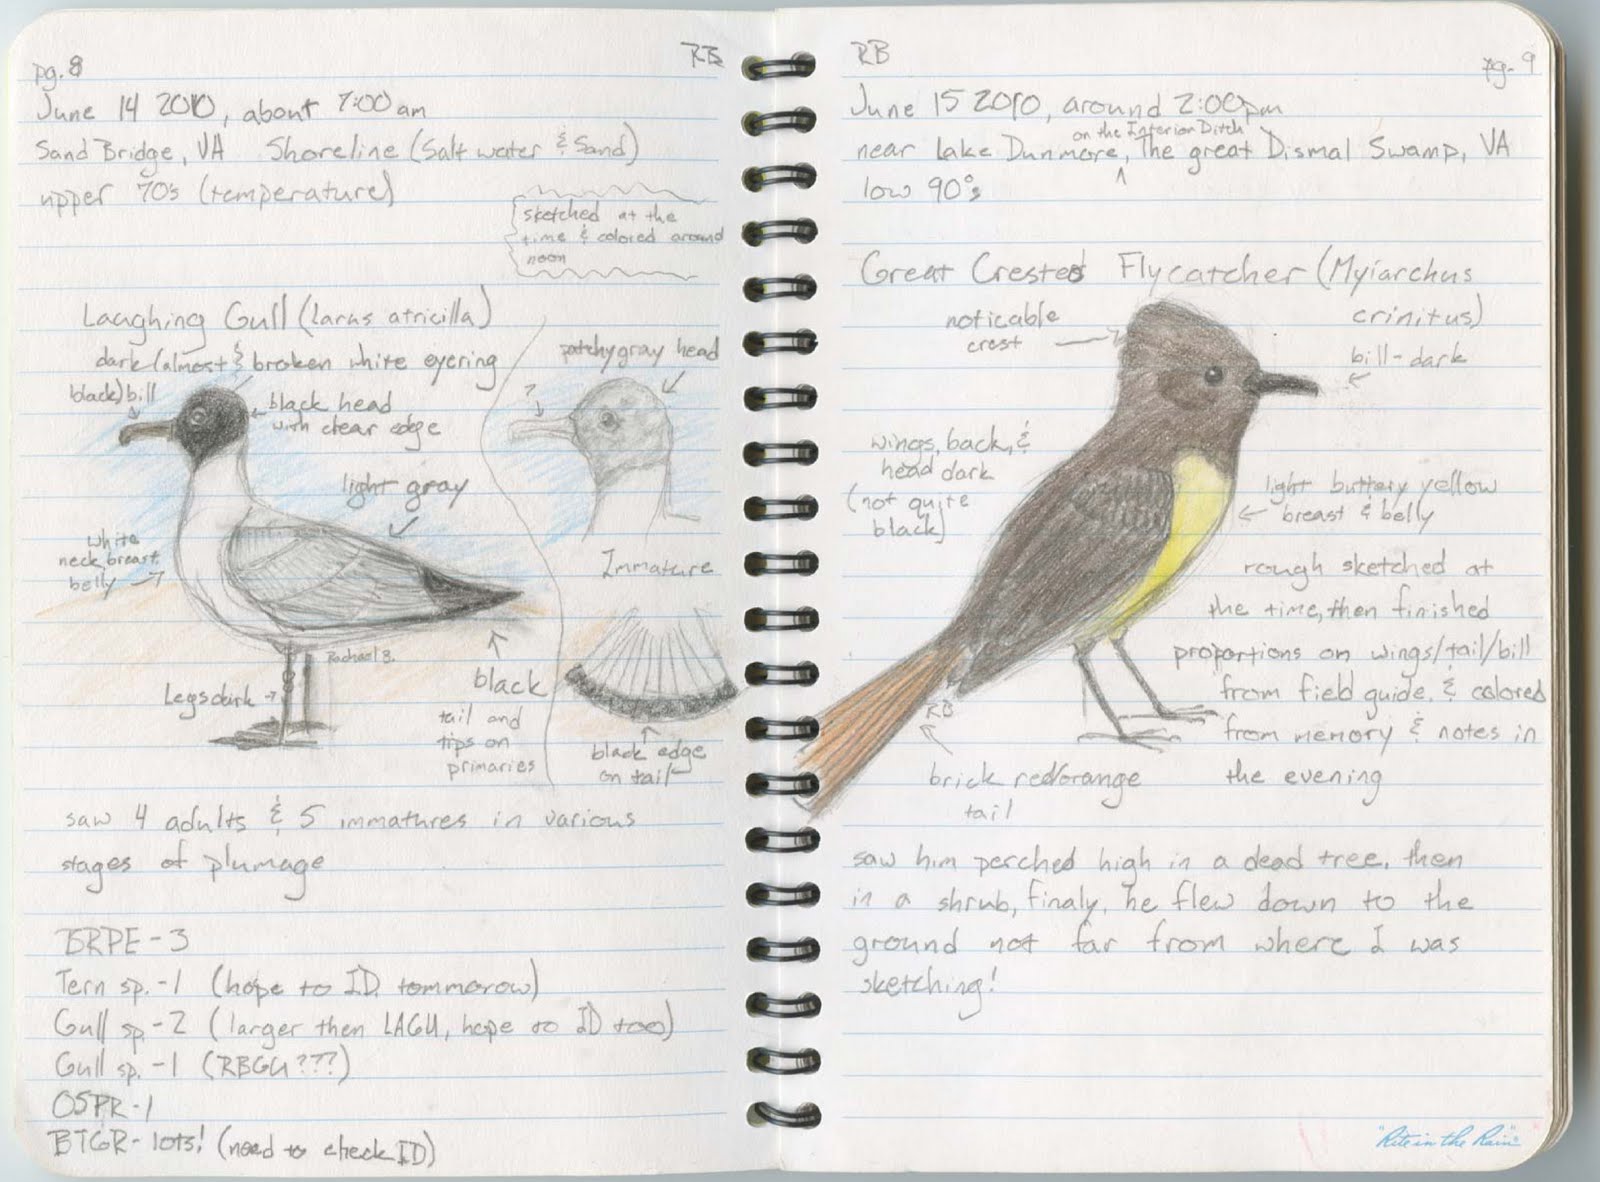 pg. 8
RB
June 14 2010, about 7:00 am
Sand Bridge, VA Shoreline (Salt water & Sand)
upper 70's (temperature)
sketched at the
time & colored around
noon
Laughing Gull (Larus atricilla)
dark (almost
black) bill
& broken white eyering
black head
with clear edge
light gray
white
neck, breast,
belly
Rachael B.
Legs dark
black
tail and
tips on
primaries
patchy gray head
?
Immature
black edge
on tail
saw 4 adults & 5 immatures in various
stages of plumage
BRPE - 3
Tern sp. - 1 (hope to I.D. tommorow)
Gull sp. - 2 (larger then LAGU, hope to ID too)
Gull sp. - 1 (RBGU???)
OSPR - 1
BTGR - lots! (need to check ID)
RB
pg. 9
June 15 2010, around 2:00pm
on the Interior Ditch
near Lake Dunmore, The great Dismal Swamp, VA
low 90°s
Great Crested Flycatcher (Myiarchus
crinitus)
noticable
crest
bill - dark
wings, back, &
head dark
(not quite
black)
light buttery yellow
breast & belly
rough sketched at
the time, then finished
proportions on wings/tail/bill
from field guide, & colored
from memory & notes in
the evening
RB
brick red/orange
tail
saw him perched high in a dead tree, then
in a shrub, finaly, he flew down to the
ground not far from where I was
sketching!
"Rite in the Rain"